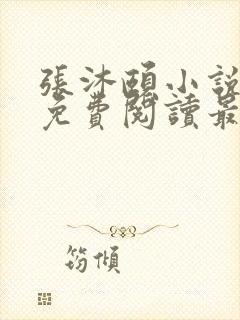 張沐頤小說
免費閱讀最
筠傾